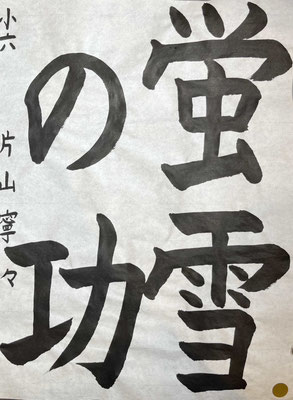 蛍雪
の功
小六 片山寧々